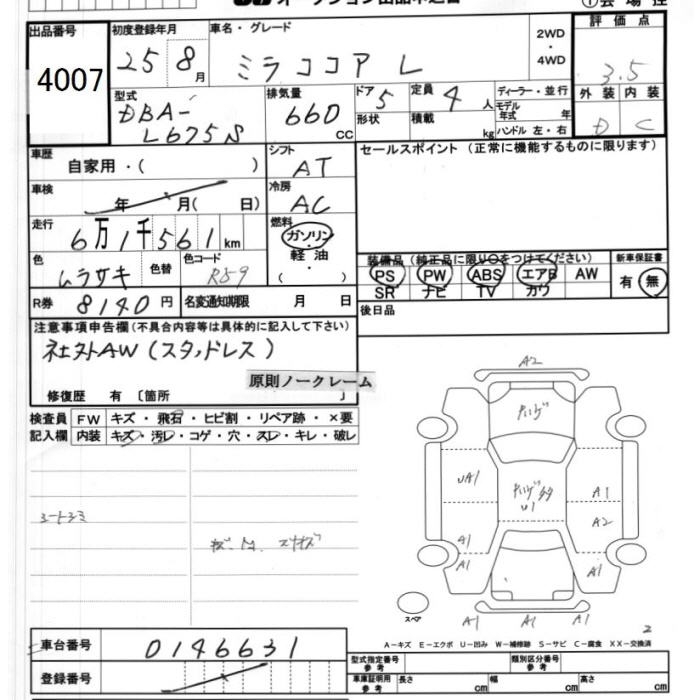 出品番号
4007
初度登録年月
25 8月
車名・グレード
ミラココア L
2WD
・
4WD
評価点
3.5
外装 内装
D C
型式
DBA-
L675S
排気量
660
CC
ドア
5
形状
定員
4人
積載
kg
ディーラー・並行
モデル
年式 年
ハンドル 左・右
車歴
自家用・( )
シフト
AT
セールスポイント (正常に機能するものに限ります)
車検
年 月( 日)
冷房
AC
走行
6万1千561km
燃料
ガソリン
・
軽油
・
色
ムラサキ
色替
色コード
R59
装備品 (純正品に限り○をつけてください)
PS PW ABS エアB AW
SR ナビ TV カワ
新車保証書
有 無
R券
8140円
名変通知期限 月 日
後日品
注意事項申告欄(不具合内容等は具体的に記入して下さい)
社外AW(スタッドレス)
原則ノークレーム
修復歴 有 〔箇所 〕
検査員
記入欄
FW キズ・飛石・ヒビ割・リペア跡・×要
内装 キズ・汚レ・コゲ・穴・スレ・キレ・破レ
A2
UA1
U1
A1
A2
A1
A1
A1
A1
A1
A1
スペア
2
A-キズ E-エクボ U-凹み W-補修跡 S-サビ C-腐食 XX-交換済
車台番号
0146631
登録番号
型式指定番号
参考
類別区分番号
参考
車庫証明用
参考
長さ cm
幅 cm
高さ cm